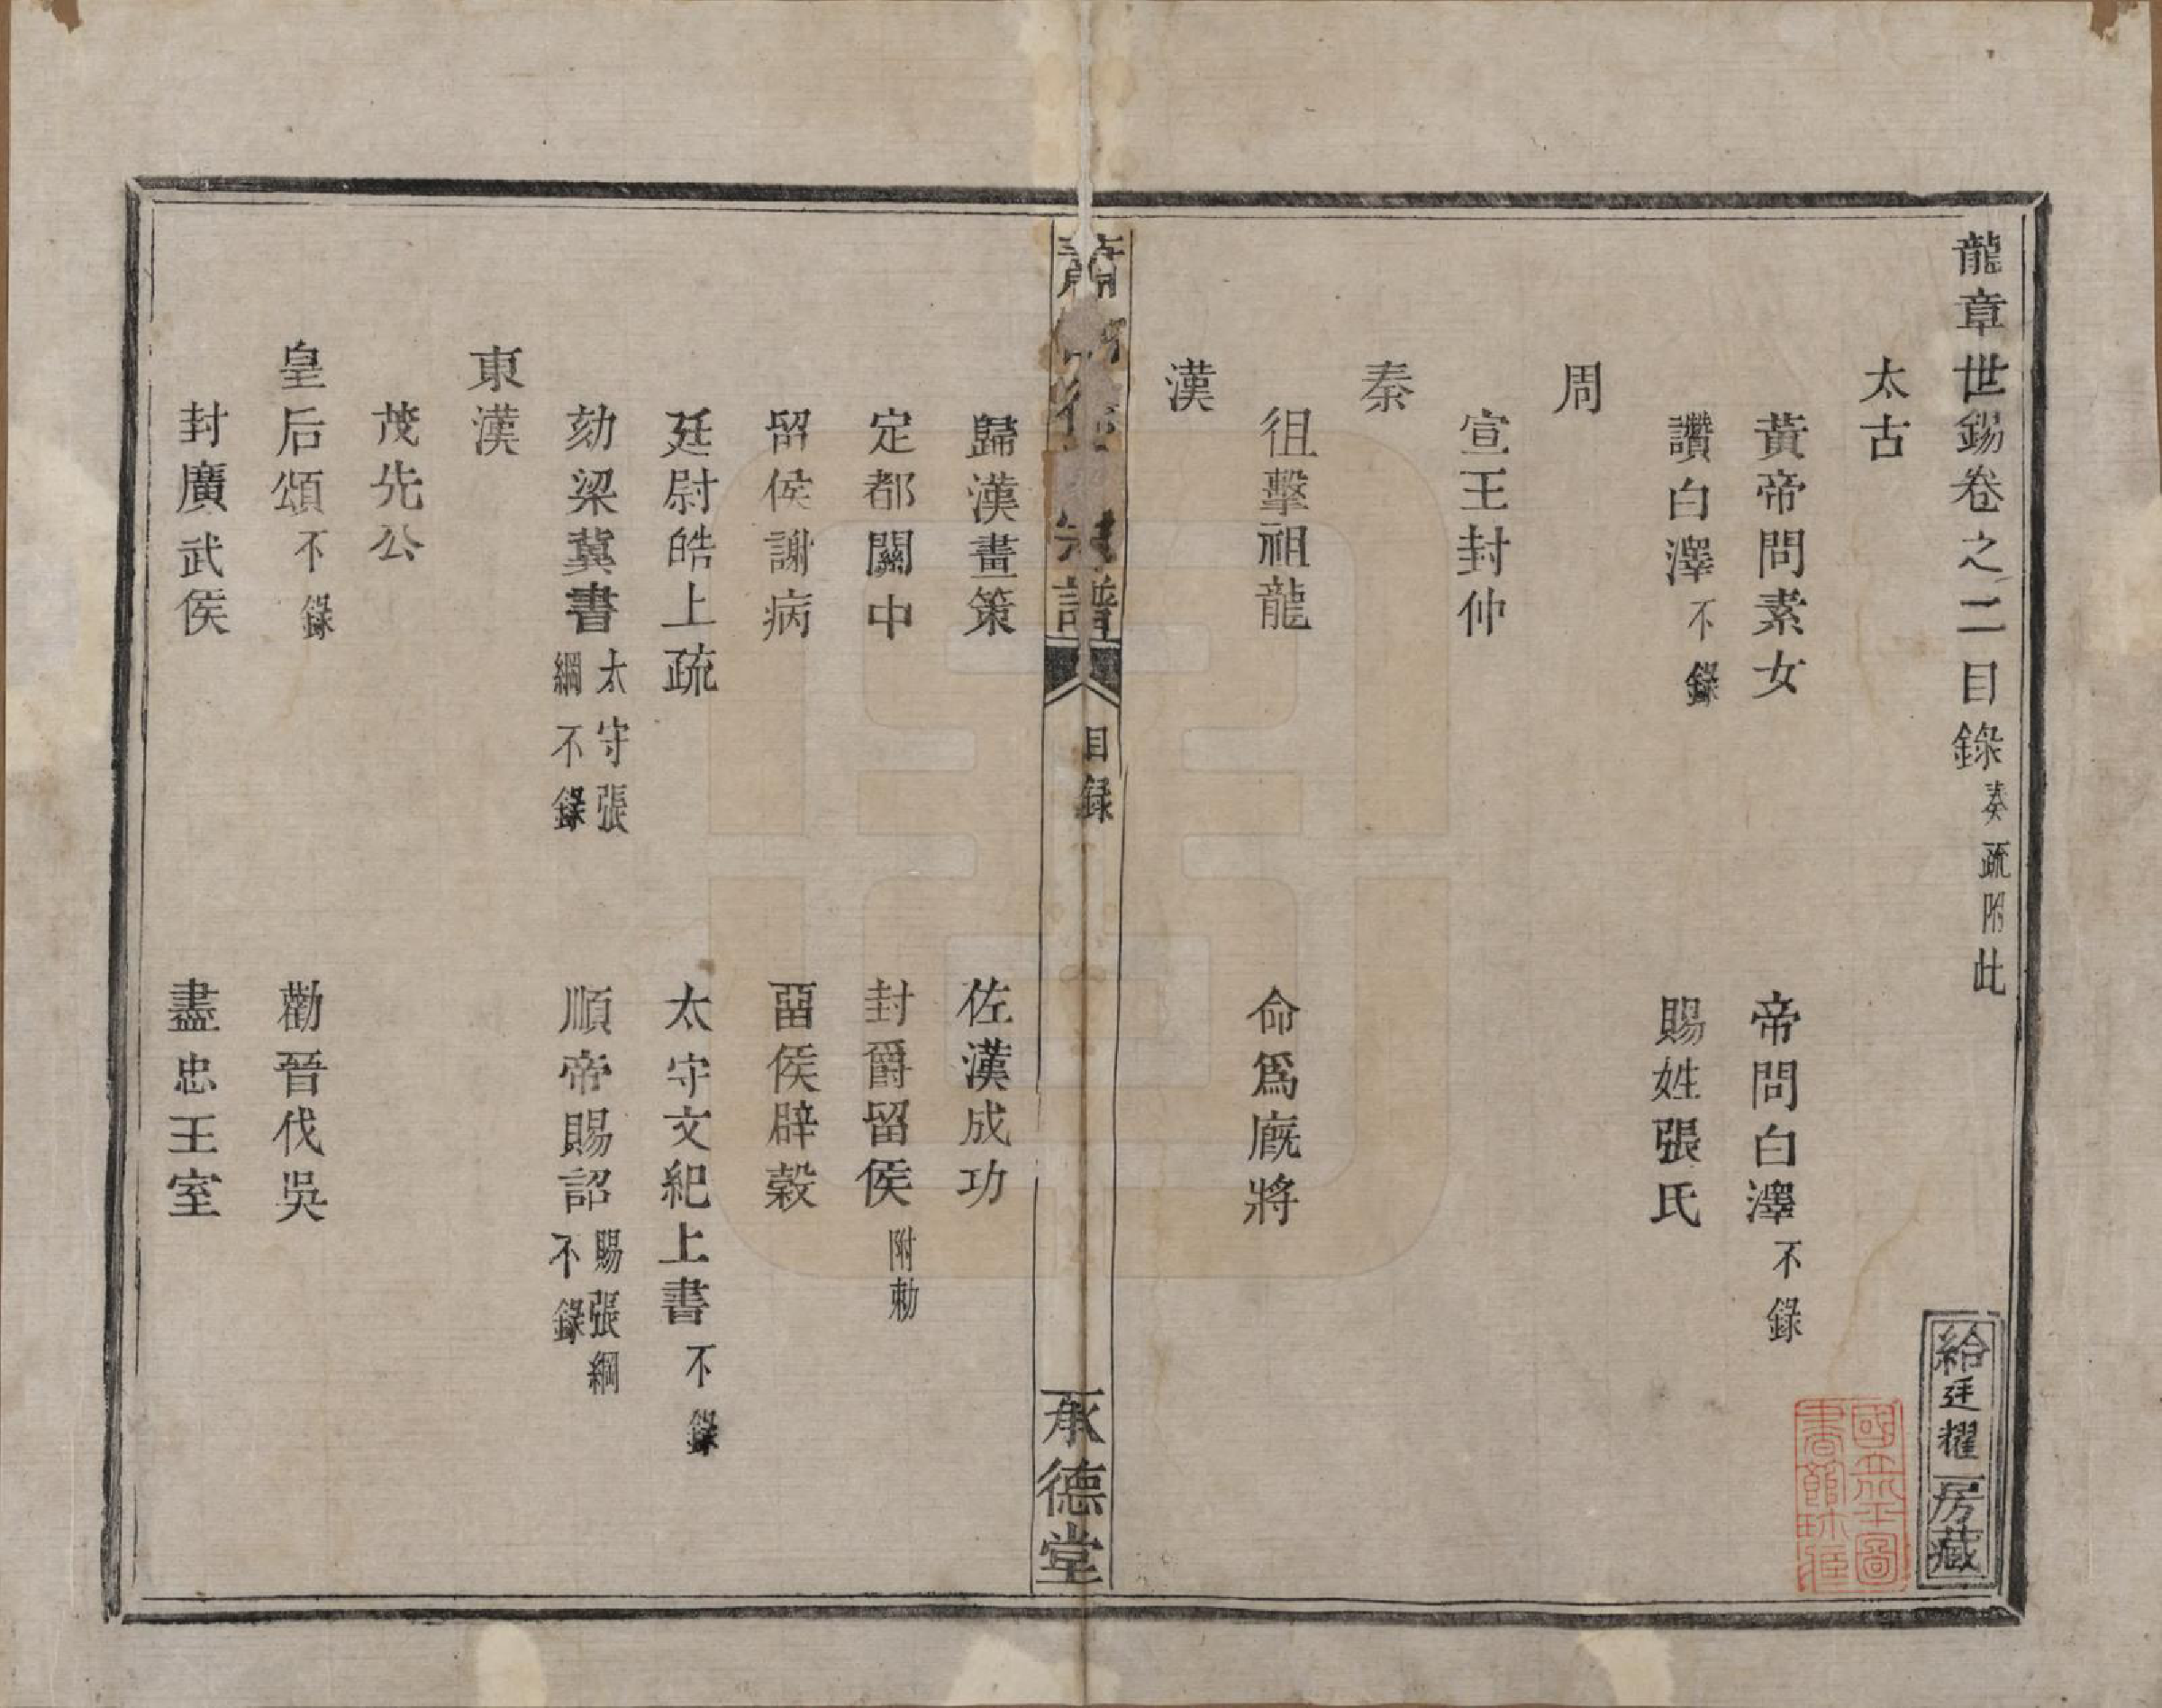 龍章世錫卷之二目錄奏疏附此
給廷耀房藏
國立北平圖書館珍藏
太古
黃帝問素女　帝問白澤不錄
讚白澤不錄　賜姓張氏
周
宣王封仲
秦
徂擊祖龍　命爲廐將
漢
譜
目録
承德堂
歸漢畫策　佐漢成功
定都關中　封爵留侯附勅
畱侯謝病　畱侯辟穀
廷尉皓上疏　太守文紀上書不錄
劾梁冀書太守張綱不錄　順帝賜詔賜張綱不錄
東漢
茂先公
皇后頌不錄　勸晉伐吳
封廣武侯　盡忠王室